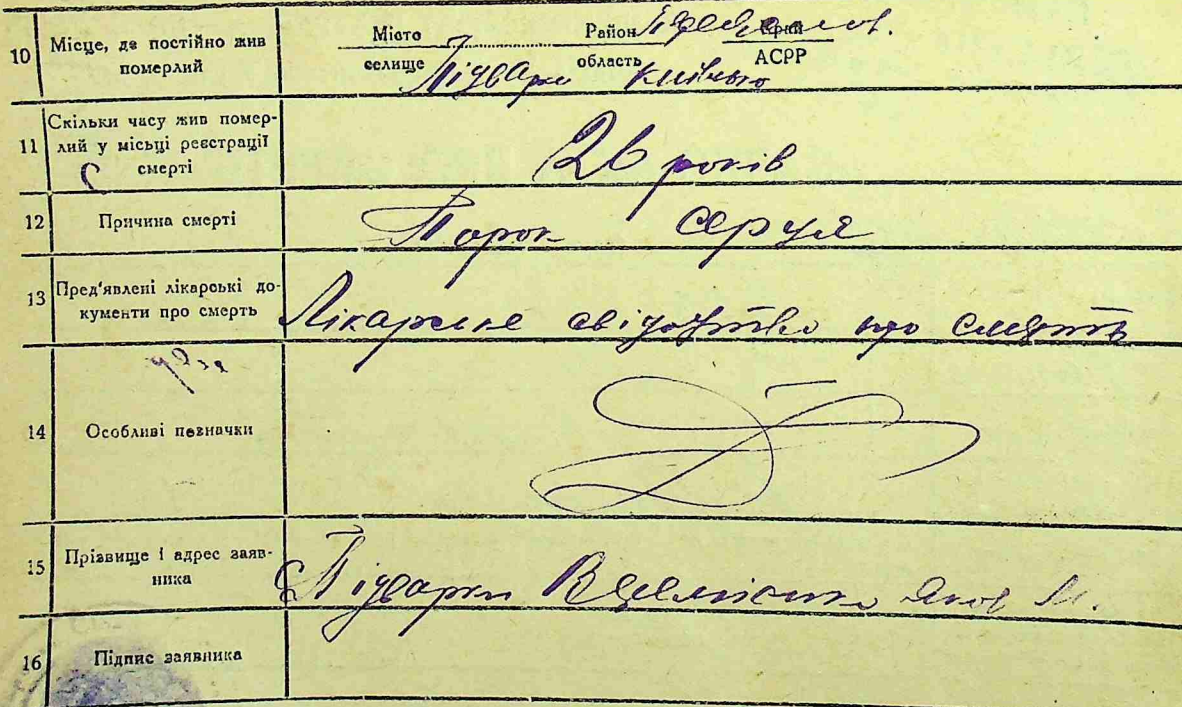 10 Місце, де постійно жив померлий
Місто Район Край
селище область АСРР
Підварки Київсько
11 Скільки часу жив помер-
лий у місьці реєстрації
смерті
26 років
12 Причина смерті
Порок серця
13 Пред'явлені лікарські до-
кументи про смерть
Лікарське свідоцтво про смерть
14 Особливі позначки
15 Прізвище і адрес заяв-
ника
с Підварки Яков М.
16 Підпис заявника